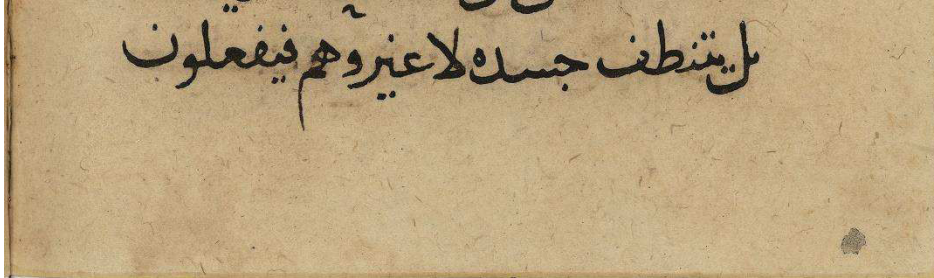 بل يتنظف جسده لا غير وهم فيفعلون